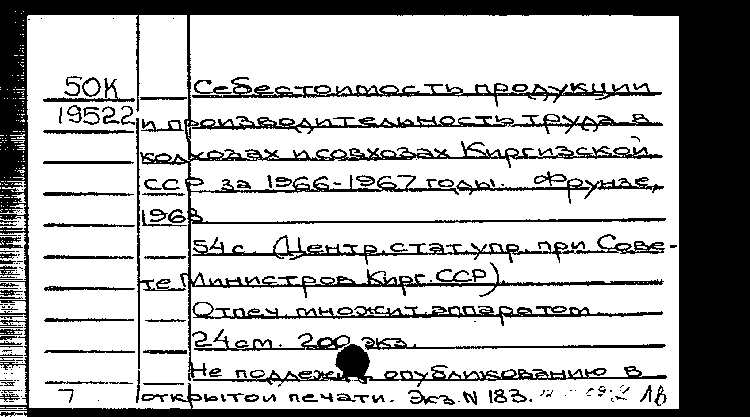 50К Себестоимость продукции
19522 и производительность труда в
колхозах и совхозах Киргизской
ССР за 1966-1967 годы. Фрунзе,
1968
54 с. (Центр. стат. упр. при Сове-
те Министров Кирг. ССР).
Отпеч. множит. аппаратом
24 см. 200 экз.
Не подлежит опубликованию в
7 открытой печати. Экз. N 183. ЛВ